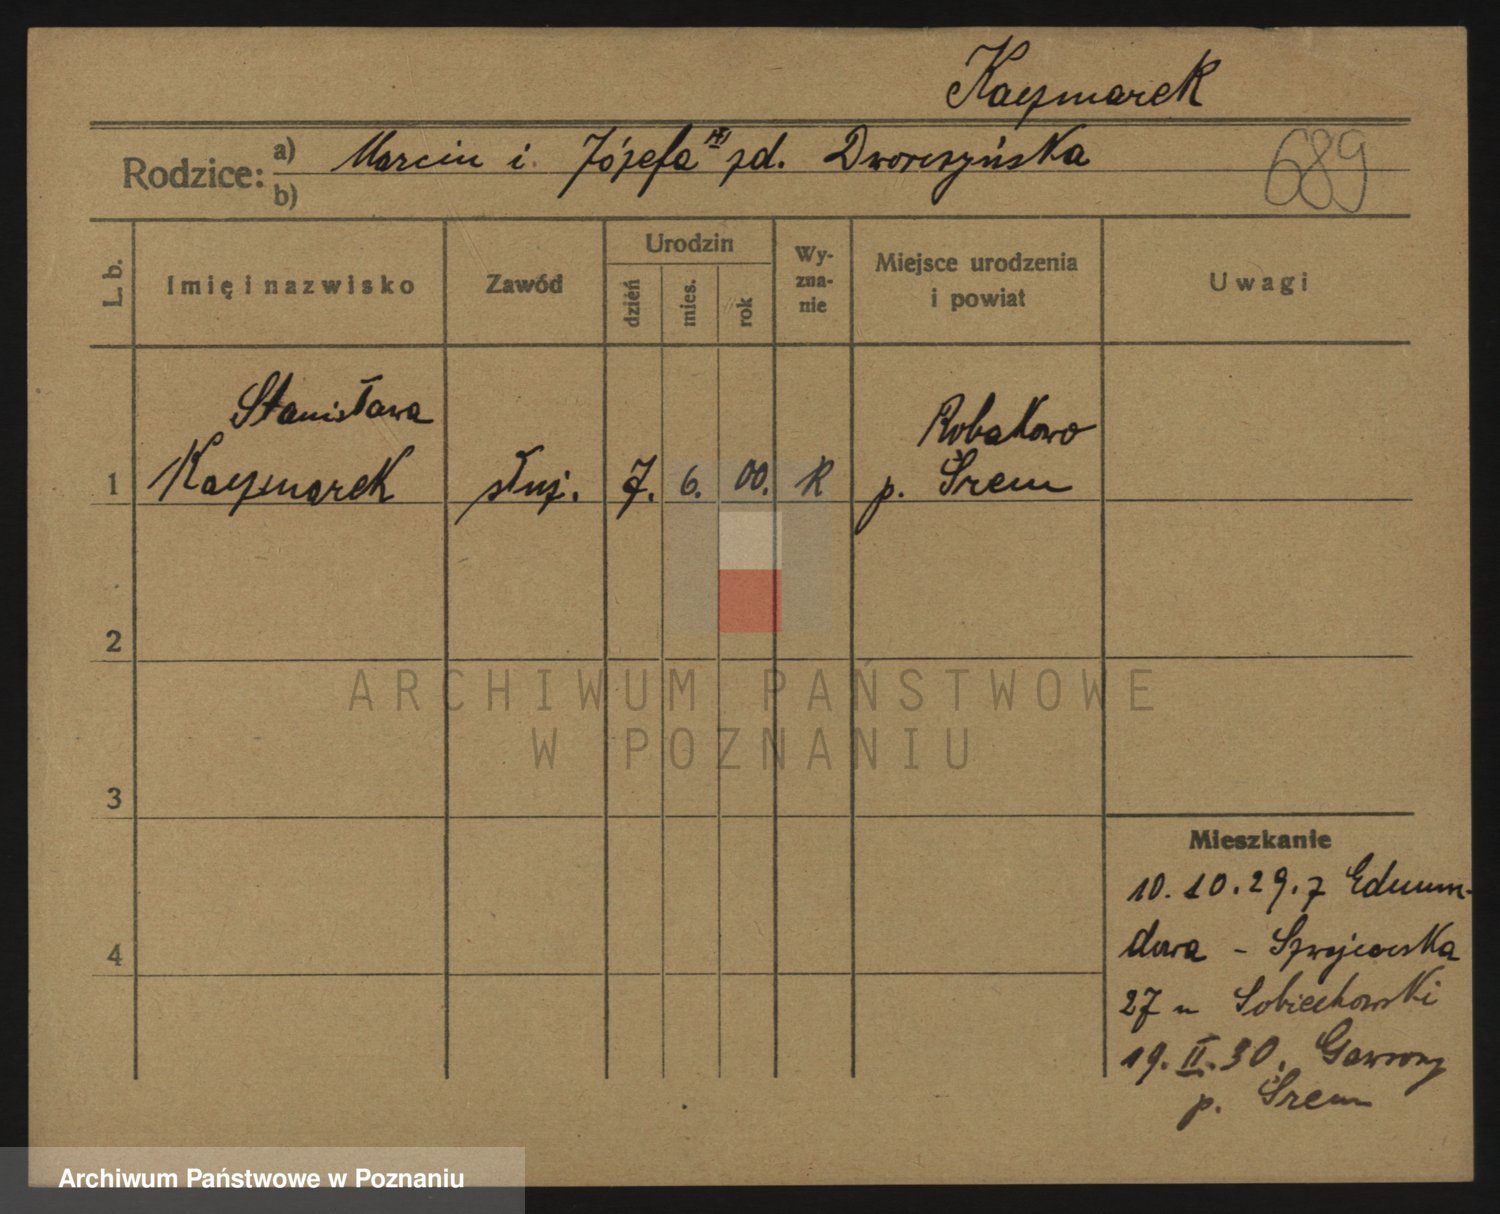 Kaczmarek
Rodzice: a) Marcin i Józefa zd. Dworczyńska
b)
689
L. b.
Imię i nazwisko
Zawód
Urodzin
dzień
mies.
rok
Wy-
zna-
nie
Miejsce urodzenia
i powiat
Uwagi
Stanisława
Robakowo
1 Kaczmarek służ. 7. 6. 00. R p. Śrem
2
ARCHIWUM PAŃSTWOWE
W POZNANIU
3
Mieszkanie
10.10.29. z Edmun-
dowa -
4
27 u Sobiechowski
19.II.30. Gawrony
p. Śrem
Archiwum Państwowe w Poznaniu